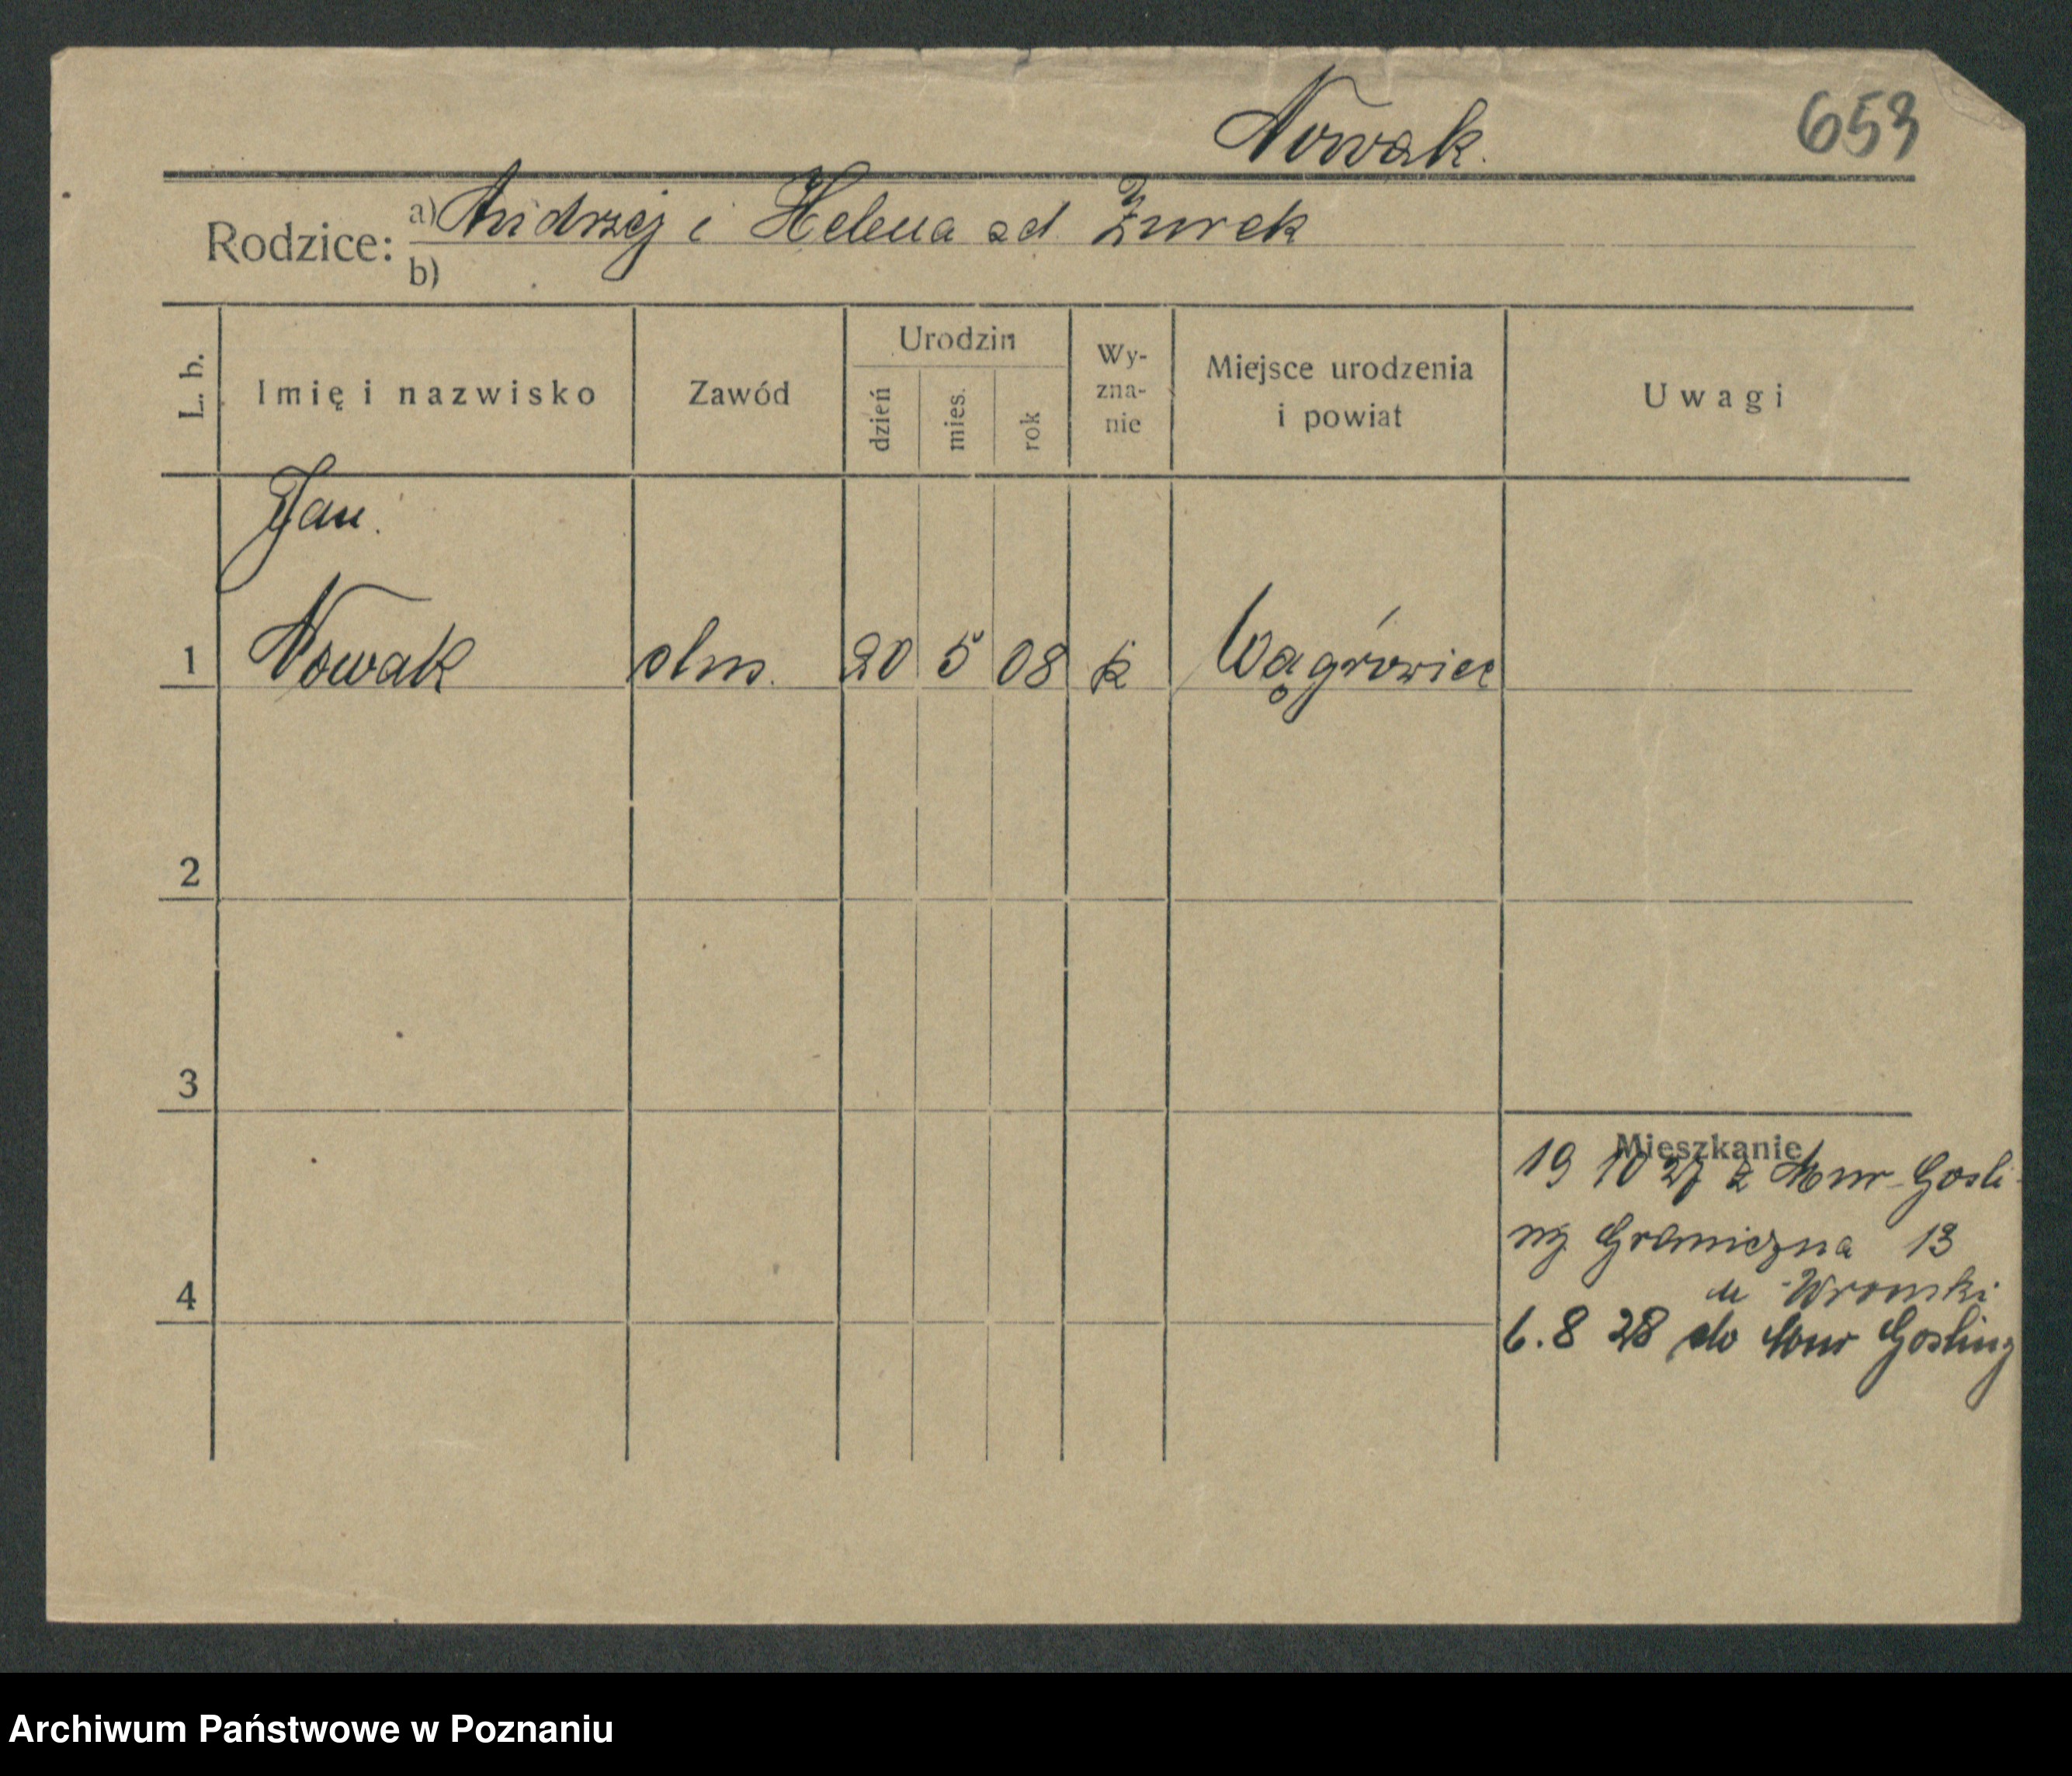 Nowak.
653
Rodzice:
a) Andrzej i Helena od Żurek
b)
L. b.
Imię i nazwisko
Zawód
Urodzin
dzień
mies.
rok
Wy-
zna-
nie
Miejsce urodzenia
i powiat
Uwagi
Jan.
1 Nowak 20 5 08 k Wągrówiec
2
3
Mieszkanie
19 10 27 z Mur-Gosli-
ny Graniczna 13
u Wronski
4
6.8 28 do Mur Gosliny
Archiwum Państwowe w Poznaniu